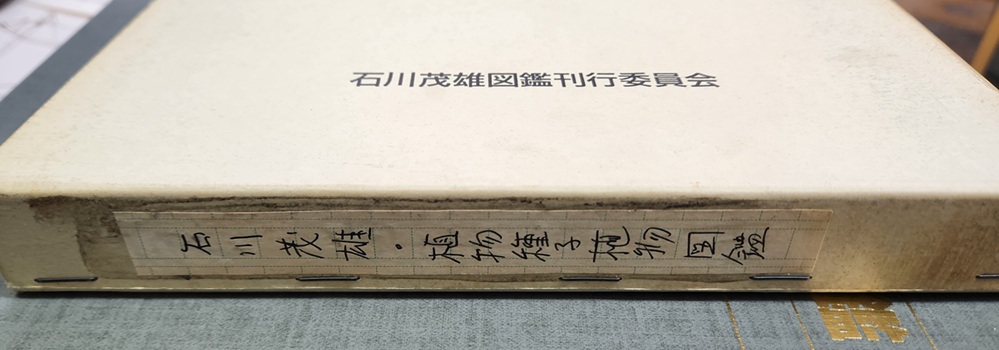 石川茂雄図鑑刊行委員会
石川茂雄・植物種子植物図鑑